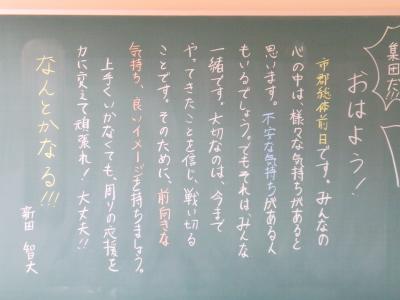 集団だ!!
おはよう！
市郡総体前日です。みんなの
心の中は、様々な気持ちがあると
思います。不安な気持ちがある人
もいるでしょう。でもそれは、みんな
一緒です。大切なのは、今まで
やってきたことを信じ、戦い切る
ことです。そのために、前向きな
気持ち、良いイメージを持ちましょう。
上手くいかなくても、周りの応援を
力に変えて頑張れ！大丈夫!!
なんとかなる!!!
新田 智大